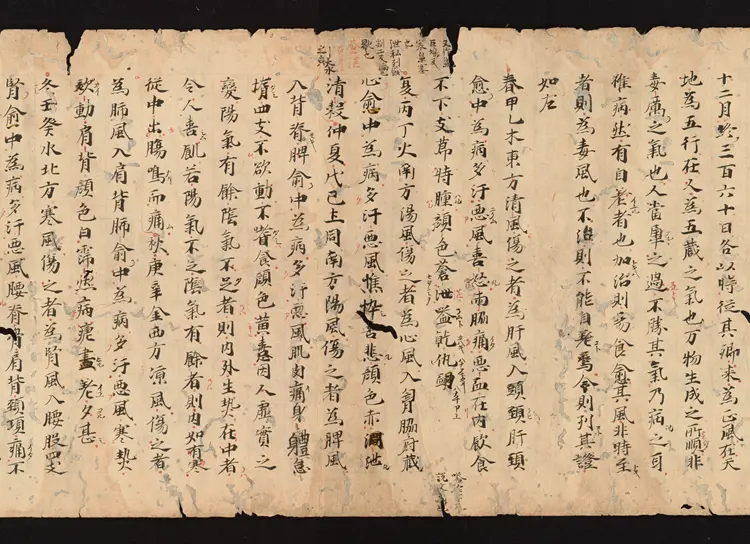 十二月終三百六十日各以時從其鄉來為正風在天
地為五行在人為五藏之氣也万物生成之所順非
毒癘之氣也人當之過不勝其氣乃病之耳
雖病然有自差者也加治則易食愈其風非時至
者則為毒風也不治則不能自差焉今則列其證
如左
春甲乙木東方清風傷之者為肝風入頭頸肝頭
愈中為病多汗惡風善怒兩脇痛惡血在内飲食
不下支節時腫顔色蒼泄益乾
夏丙丁火南方湯風傷之者為心風入胷脇府藏
心愈中為病多汗惡風憔悴喜悲顔色赤洞泄
清穀仲夏戊己土同南方陽風傷之者為脾風
入背脊脾俞中為病多汗惡風肌肉痛身體怠
墯四支不欲動不嗜食顔色黄因人虚實之
變陽氣有餘陰氣不足者則内外生熱在中者
令人善飢若陽氣不足陰氣有餘者則内如有寒
從中出腸鳴而痛秋庚辛金西方凉風傷之者
為肺風入肩背肺俞中為病多汗惡風寒熱
欬動肩背顔色白病晝差夕甚
冬壬癸水北方寒風傷之者為腎風入腰股四支
腎愈中為病多汗惡風腰脊肩背頸項痛不